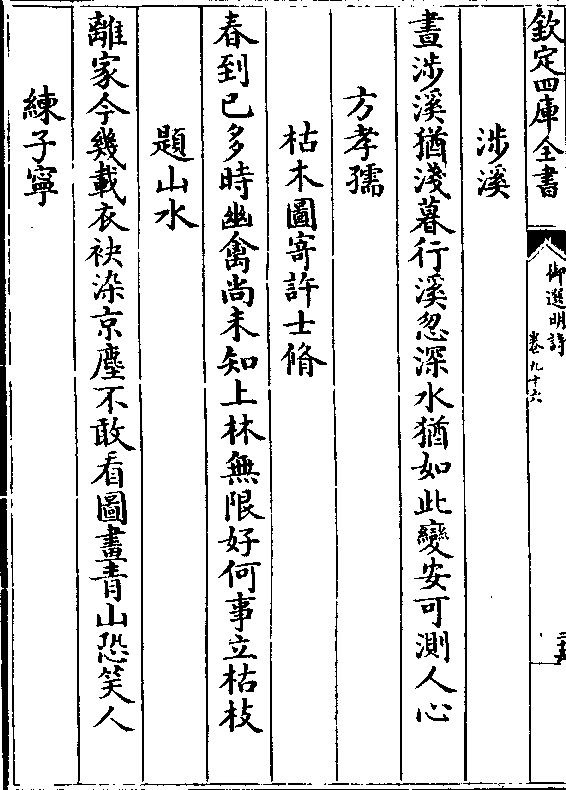 欽定四庫全書
御選明詩
卷九十六
二十五
涉溪
晝涉溪猶淺暮行溪忽深水猶如此變安可測人心
方孝孺
枯木圖寄許士脩
春到已多時幽禽尚未知上林無限好何事立枯枝
題山水
離家今幾載衣袂染京塵不敢看圖畫青山恐笑人
練子寧